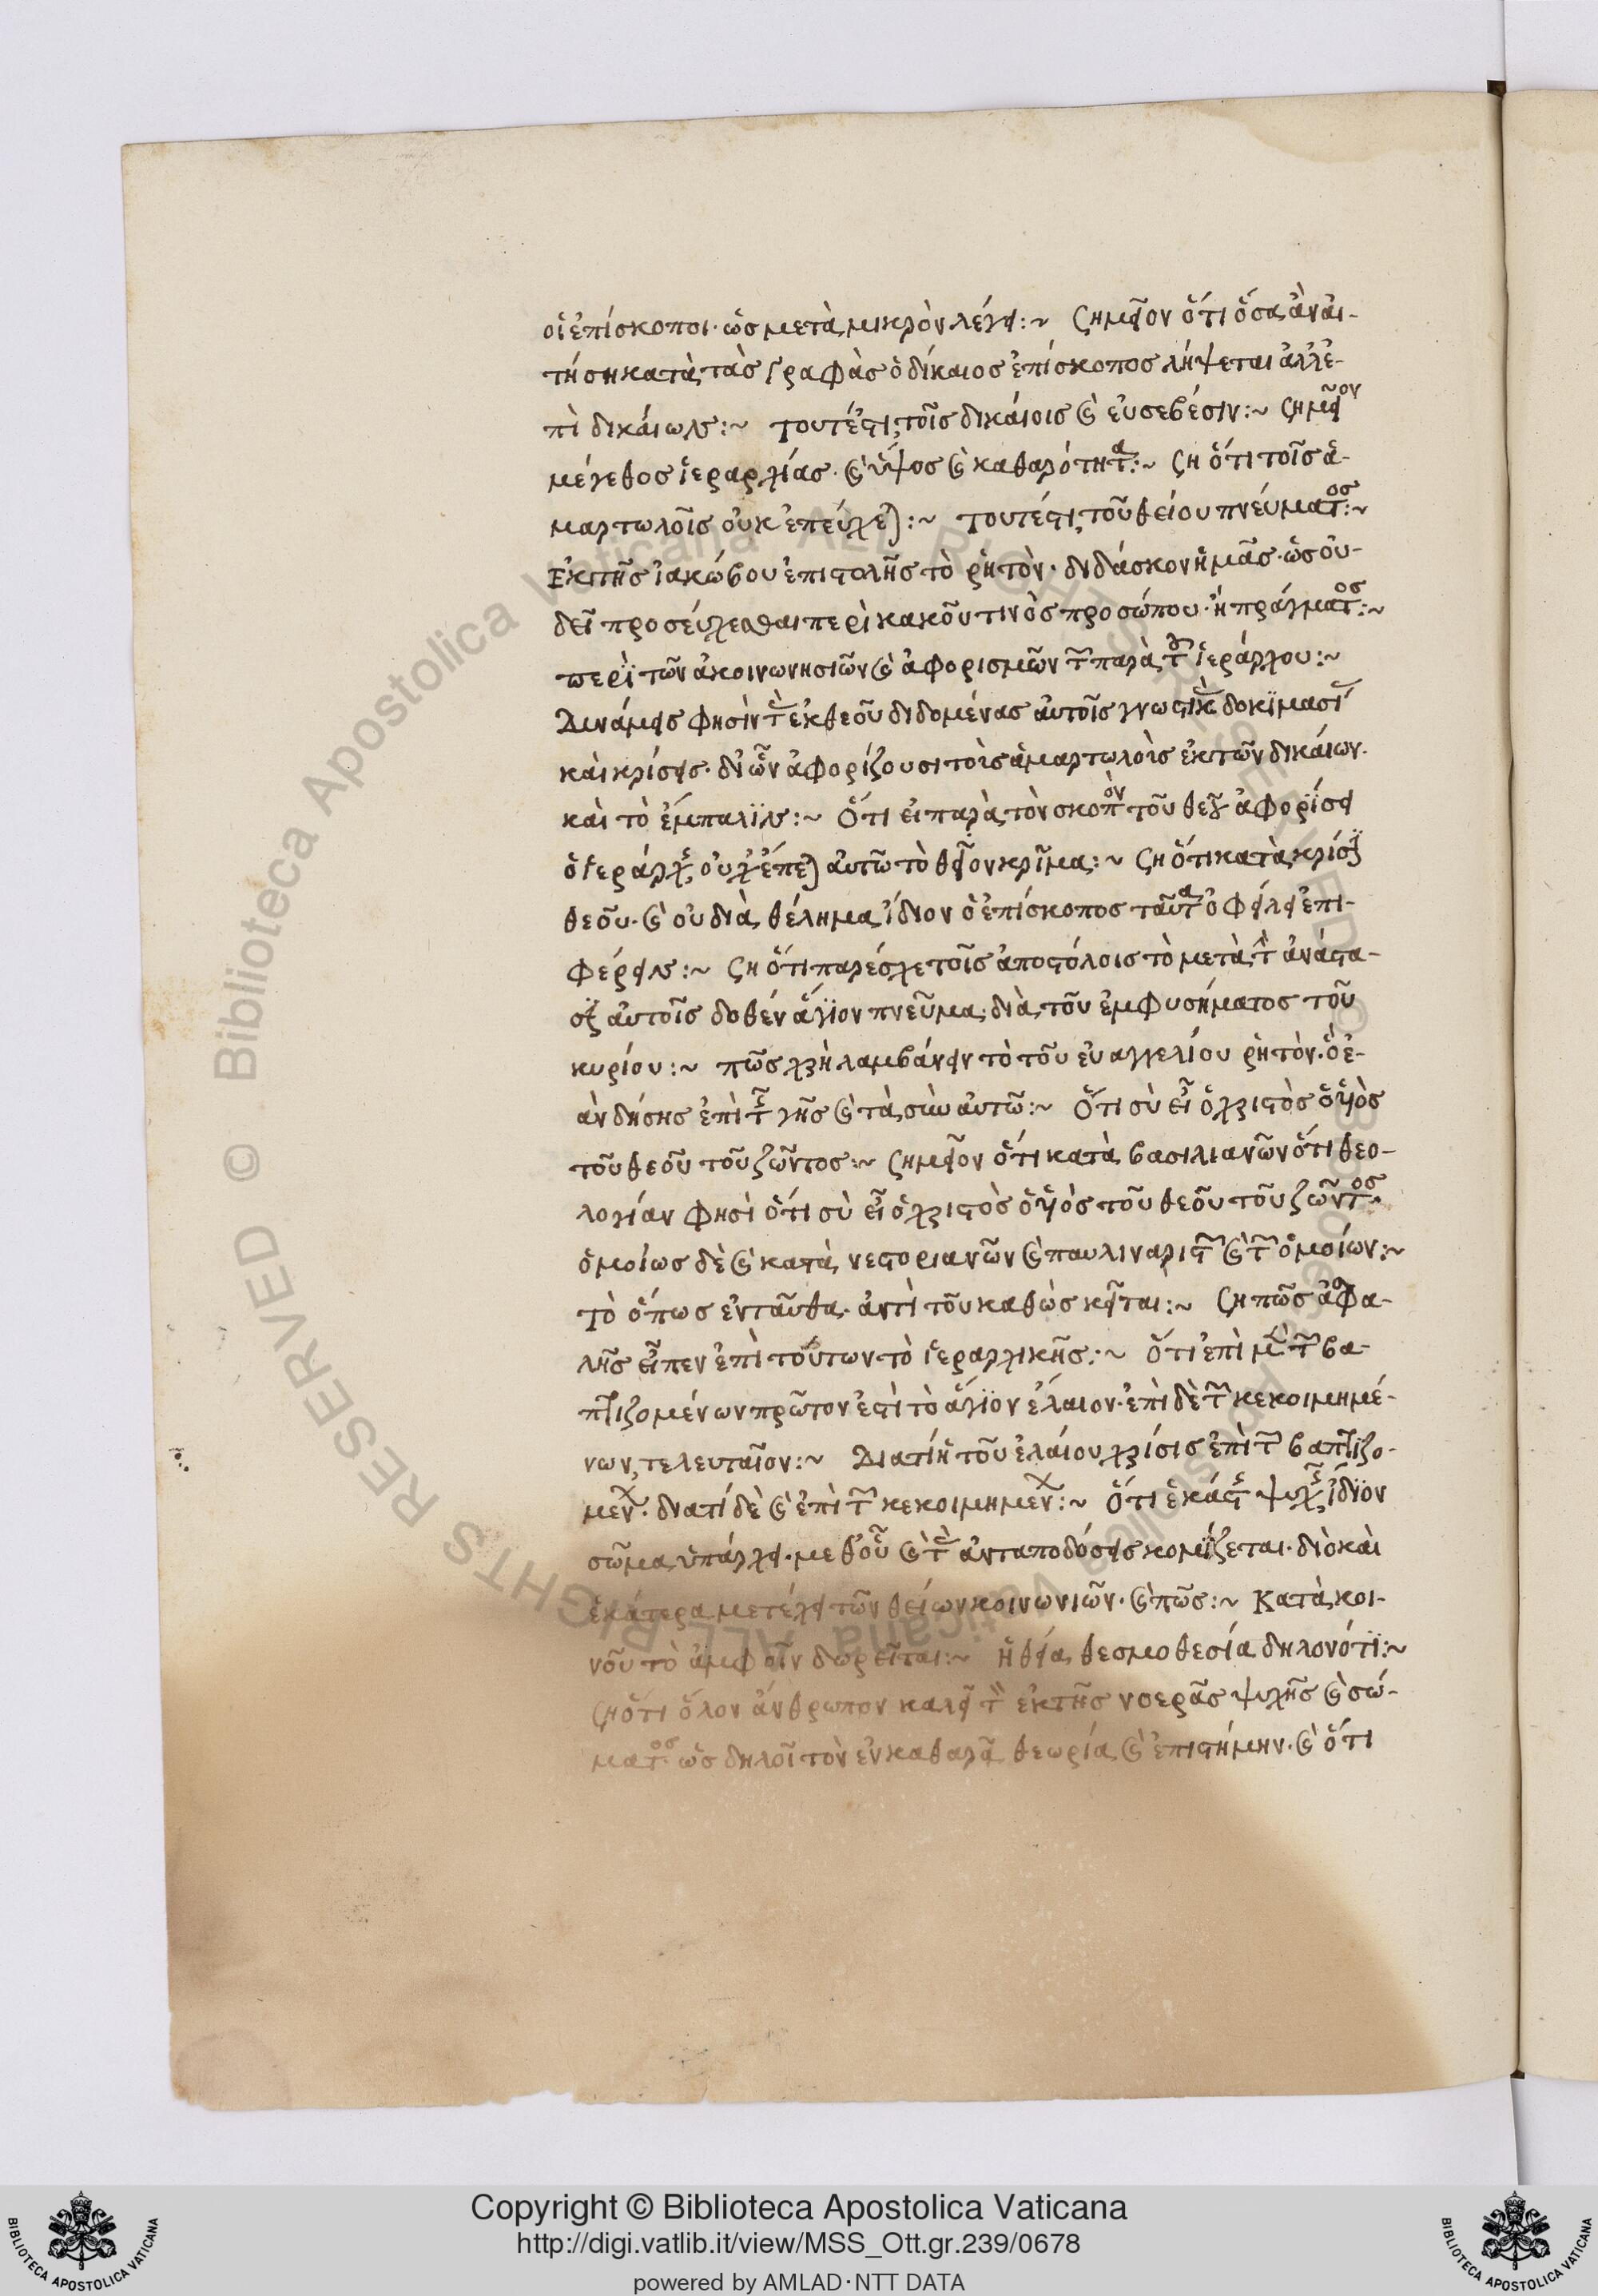 οἱ ἐπίσκοποι· ὡς μετὰ μικρὸν λέγει:~ Σημεῖον ὅτι ὅσα ἂν αἰ-
τήσῃ κατὰ τὰς γραφὰς ὁ δίκαιος ἐπίσκοπος λήψεται ἀλλ' ἐ-
πὶ δικαίων:~ τουτέστι, τοῖς δικαίοις καὶ εὐσεβέσιν:~ Σημεῖον
μέγεθος ἱεραρχίας· καὶ ὕψος καὶ καθαρότητα:~ Ση ὅτι τοῖς ἁ-
μαρτωλοῖς οὐκ ἐπεύχεται:~ τουτέστι, τοῦ θείου πνεύματος:~
Ἐκ τῆς ἰακώβου ἐπιστολῆς τὸ ῥητὸν· διδάσκον ἡμᾶς· ὡς οὐ
δεῖ προσεύχεσθαι περὶ κακοῦ τινὸς προσώπου· ἢ πράγματος:~
περὶ τῶν ἀκοινωνησιῶν καὶ ἀφορισμῶν τῶν παρὰ τοῦ ἱεράρχου:~
Δυνάμεις φησὶν τὰς ἐκ θεοῦ διδομένας αὐτοῖς γνωστικὰς δοκιμασίας
καὶ κρίσεις· δι' ὧν ἀφορίζουσι τοῖς ἁμαρτωλοῖς ἐκ τῶν δικαίων·
καὶ τὸ ἔμπαλιν:~ Ὅτι εἰ παρὰ τὸν σκοπὸν τοῦ θεοῦ ἀφορίσει
ὁ ἱεράρχης, οὐχ ἕπεται αὐτῶ τὸ θεῖον κρῖμα:~ Ση ὅτι κατὰ κρίσιν
θεοῦ· καὶ οὐ διὰ θέλημα ἴδιον ὁ ἐπίσκοπος ταῦτα ὀφείλει ἐπι-
φέρειν:~ Ση ὅτι παρέσχε τοῖς ἀποστόλοις τὸ μετὰ τὴν ἀνάστα-
σιν αὐτοῖς δοθὲν ἅγιον πνεῦμα, διὰ τοῦ ἐμφυσήματος τοῦ
κυρίου:~ πῶς χρὴ λαμβάνειν τὸ τοῦ εὐαγγελίου ῥητὸν· ὃ ἐ-
ὰν δήσῃς ἐπὶ τῆς γῆς καὶ τὰ σὺν αὐτῶ:~ Ὅτι σὺ εἶ ὁ χριστὸς ὁ υἱὸς
τοῦ θεοῦ τοῦ ζῶντος:~ Σημεῖον ὅτι κατὰ βασιλιανῶν ὅτι θεο-
λογίαν φησὶ ὅτι σὺ εἶ ὁ χριστὸς ὁ υἱὸς τοῦ θεοῦ τοῦ ζῶντος·
ὁμοίως δὲ καὶ κατὰ νεστοριανῶν καὶ παυλιναριστῶν καὶ τῶν ὁμοίων:~
Τὸ ὅπως ἐνταῦθα· ἀντὶ τοῦ καθὼς κεῖται:~ Ση πῶς ἀσφα-
λῆς εἶπεν ἐπὶ τούτων τὸ ἱεραρχικῆς:~ Ὅτι ἐπὶ μὲν τῶν βα-
πτιζομένων πρῶτον ἐστὶ τὸ ἅγιον ἔλαιον· ἐπὶ δὲ τῶν κεκοιμημέ-
νων, τελευταῖον:~ Διατί ἡ τοῦ ἐλαίου χρίσις ἐπὶ τῶν βαπτιζο-
μένων· διατί δὲ καὶ ἐπὶ τῶν κεκοιμημένων:~ Ὅτι ἑκάστης ψυχῆς ἴδιον
σῶμα ὑπάρχει· μεθ' οὗ καὶ τὰς ἀνταποδόσεις κομίζεται· διὸ καὶ
ἑκάτερα μετέχει τῶν θείων κοινωνιῶν· καὶ πῶς:~ Κατὰ κοι-
νοῦ τὸ ἀμφοῖν δωρεῖται:~ ἡ θεία θεσμοθεσία δηλονότι:~
Ση ὅτι ὅλον ἄνθρωπον καλεῖ τὸν ἐκ τῆς νοερᾶς ψυχῆς καὶ σώ-
ματος· ὡς δηλοῖ τὸν ἐν καθαρᾶ θεωρία καὶ ἐπιστήμην· καὶ ὅτι
Copyright © Biblioteca Apostolica Vaticana
http://digi.vatlib.it/view/MSS_Ott.gr.239/0678
powered by AMLAD·NTT DATA